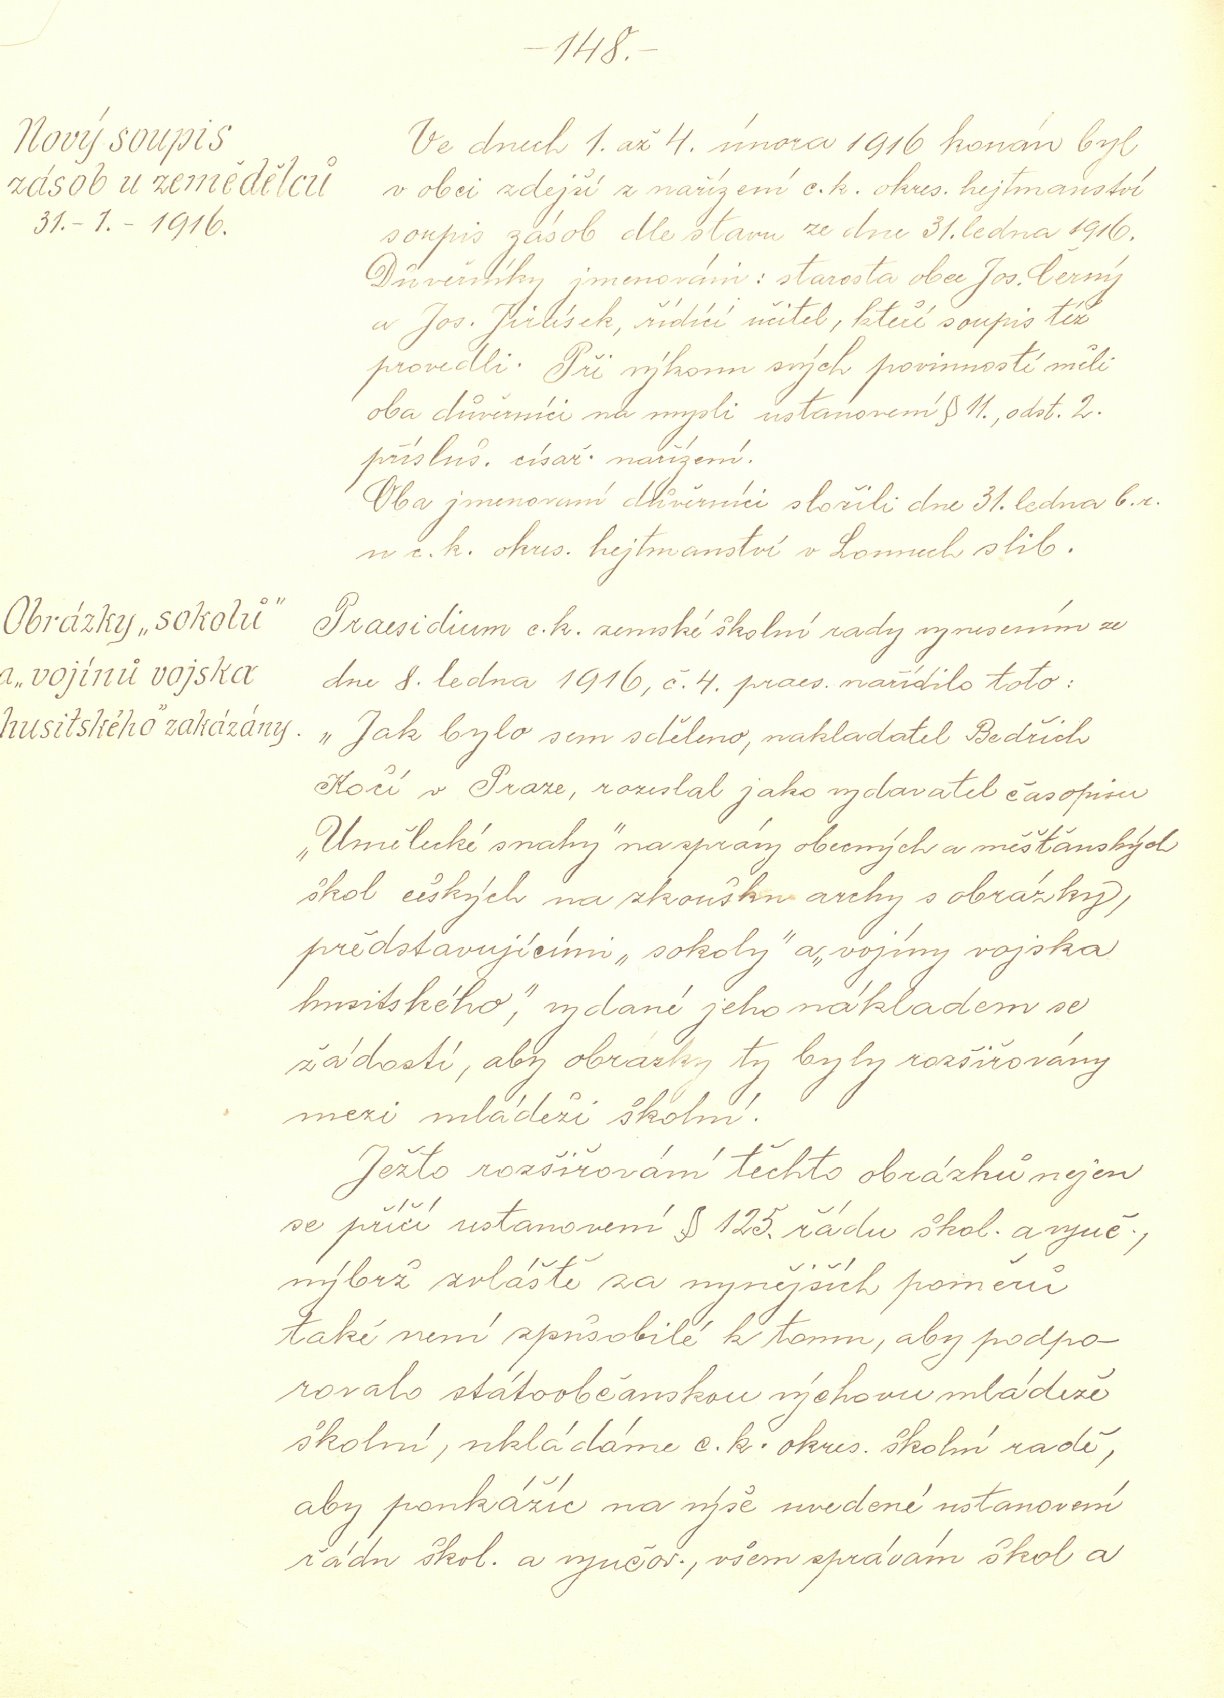 -148.-
Nový soupis
zásob u zemědělců
31.-1.-1916.
Ve dnech 1. až 4. února 1916 konán byl
v obci zdejší z nařízení c. k. okres. hejtmanství
soupis zásob dle stavu ze dne 31. ledna 1916.
Důvěrníky jmenováni: starosta obce Jos. Černý
a Jos. Jirásek, řídící učitel, kteří soupis též
provedli. Při výkonu svých povinností měli
oba důvěrníci na mysli ustanovení § 11., odst. 2.
přísluš. císař. nařízení.
Oba jmenovaní důvěrníci složili dne 31. ledna t. r.
u c. k. okres. hejtmanství v Lounech slib.
Obrázky „sokolů"
a „vojínů vojska
husitského" zakázány.
Praesidium c. k. zemské školní rady vynesením ze
dne 8. ledna 1916, č. 4. praes. nařídilo toto:
„Jak bylo sem sděleno, nakladatel Bedřich
Kočí v Praze, rozeslal jako vydavatel časopisu
„Umělecké snahy" na správy obecných a měšťanských
škol českých na zkoušku archy s obrázky,
představujícími „sokoly" a „vojíny vojska
husitského", vydané jeho nákladem se
žádostí, aby obrázky ty byly rozšiřovány
mezi mládeží školní.
Ježto rozšiřování těchto obrázků nejen
se příčí ustanovení § 125. řádu škol. a vyuč.,
nýbrž zvláště za nynějších poměrů
také není způsobilé k tomu, aby podpo-
rovalo státoobčanskou výchovu mládeže
školní, ukládáme c. k. okres. školní radě,
aby poukážíc na výše uvedené ustanovení
řádu škol. a vyučov., všem správám škol a